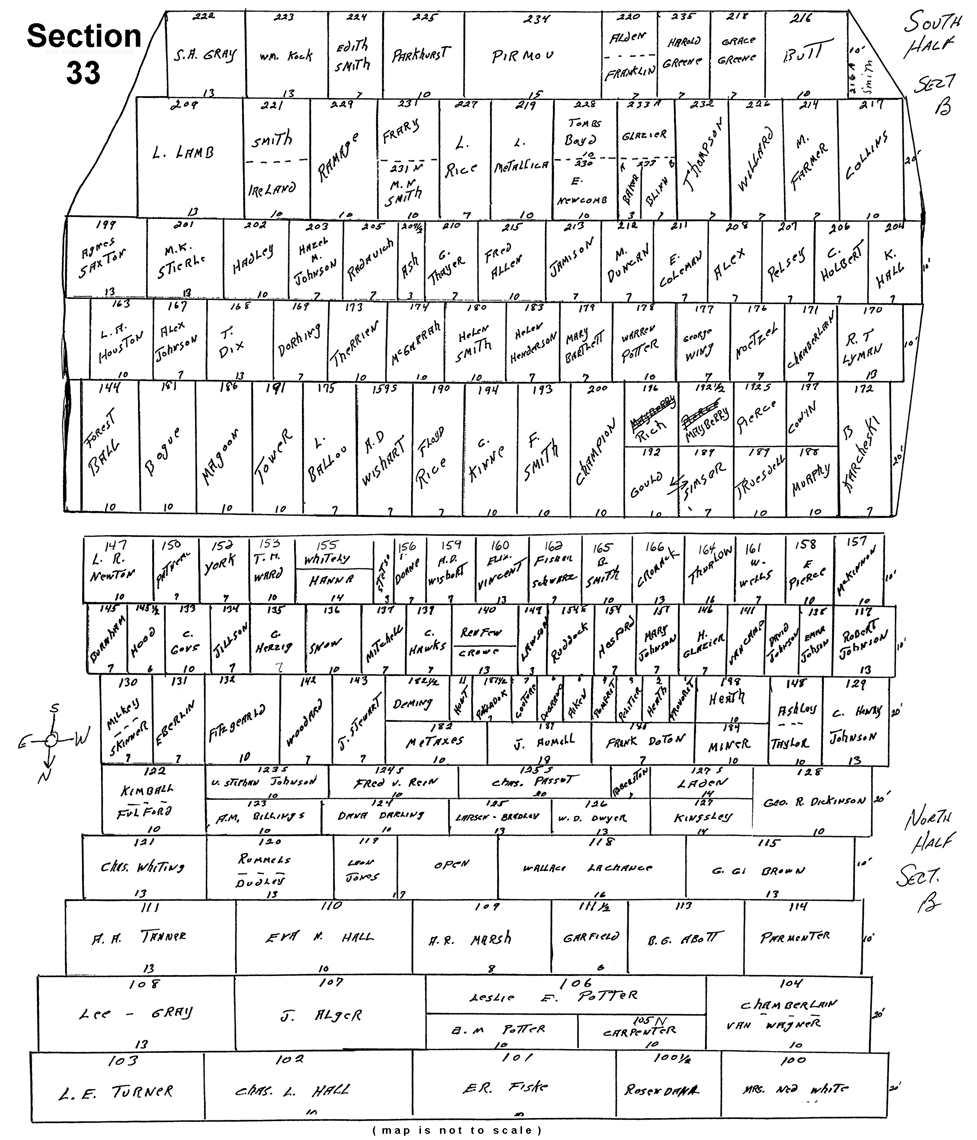 Section
33
SOUTH
HALF
SECT
B
222 223 224 225 234 220 235 218 216
S.A. GRAY WM. KOCK EDITH SMITH PARKHURST PIRMOU ALDEN FRANKLIN HAROLD GREENE GRACE GREENE BUTT 216 A Smith 10'
13 13 7 10 15 10 7 7 10
209 221 229 231 227 219 228 233A 232 226 214 217
L. LAMB SMITH IRELAND RAMAGE FRARY 231 N M.N SMITH L. RICE L. METALLICA TOMBS Boyd 10 230 E. NEWCOMB GLAZIER BAKER BLINN THOMPSON WOLLARD M. FARMER COLLINS 20'
13 10 10 10 7 10 10 3 7 7 7 7 10
199 201 202 203 205 209½ 210 215 213 212 211 208 207 206 204
AGNES SAXTON M.K. STIERLE HADLEY HAZEL M. JOHNSON RADAVICH ASH G. THAYER FRED ALLEN JAMISON M. DUNCAN E. COLEMAN ALEX PELSEY C. HOLBERT K. HALL 10'
13 13 10 7 7 3 7 10 10 7 7 7 7 7 7
163 167 168 169 173 174 180 183 179 178 177 176 171 170
L.A. HOUSTON ALEX JOHNSON T. DIX DORNING THERRIEN McGARRAH HELEN SMITH HELEN HENDERSON MARY BARTLETT WARREN POTTER GEORGE WING NOETZEL CHAMBERLAIN R.T LYMAN 10'
10 7 13 10 7 7 10 7 7 10 7 7 7 13
144 181 186 191 175 159S 190 194 193 200 196 192½ 192S 197 172
FOREST BALL Bogue MAGOON TOWER L. BALLOU A.D WISHART FLOYD RICE G. KINNE F. SMITH CHAMPION Rich MAYBERRY PIERCE COWYN B KARCHESKI 20'
192 189 187 188
GOULD SIMSOR TRUESDELL MURPHY
10 10 10 10 10 10 10 10 10 10 10 7 10 10 7
147 150 152 153 155 156 159 160 162 165 166 164 161 158 157
L.R. NEWTON YORK T.M. WARD WHITELY HANNA DOANE A.D. WISHART VINCENT SCHWARZ B. SMITH CROMACK THURLOW W. WELLS E PIERCE McKINNON 10'
10 7 7 10 14 3 7 7 10 10 10 13 16 7 10 10
145 145½ 133 134 135 136 137 139 140 149 154S 154 151 146 141 138 117
BURNHAM HOOD C. GOVE JILLSON G. HERZIG SNOW MITCHELL C. HAWKS RENFEW CROWE LAWSON RUDDOCK HOSFORD MARY JOHNSON H. GLAZIER VAN CAMP DAVID JOHNSON EMMA JOHNSON ROBERT JOHNSON 10'
7 6 10 7 7 10 7 7 13 3 7 7 7 7 7 7 7 13
130 131 132 142 143 182½ 187½ 198 148 129
MILKEY SKINNER EBERLIN FITZGEARLD WOODARD J. STEWART DEMING HUNT AIKEN HEATH HEATH ASHLEY TAYLOR C. HENRY JOHNSON 20'
182 187 186 184
METAXES J. AUMELL FRANK DOTON MINER
7 7 10 10 7 10 19 7 10 10 13
122 123S 124S 125S 127S 128
KIMBALL FULFORD V. STEPHAN JOHNSON FRED V. REIN CHAS. PASSOT ROBERTSON LADEN GEO. R. DICKINSON 20'
10 10 20 14
123 124 125 126 127
A.M. BILLINGS DANA DARLING LARSEN-BRADLEY W.D. DWYER KINGSLEY
10 10 10 13 13 14 10
121 120 119 118 115
CHAS. WHITING RUMMELS DUDLEY LEON JONES OPEN WALLACE LACHANCE G. GI BROWN 10'
13 13 17 16 13
111 110 109 111½ 113 114
A.A. TANNER EVA N. HALL A.R. MARSH GARFIELD B.G. ABOTT PARMENTER 10'
13 10 8 6
108 107 106 104
Lee - GRAY J. ALGER LESLIE E. POTTER CHAMBERLAIN VAN WAGNER 20'
105 N
B.M POTTER CARPENTER
13 10 10 10
103 102 101 100½ 100
L.E. TURNER CHAS. L. HALL E.R. FISKE ROSEN DAHL MRS. NED WHITE 20'
S
E W
N
NORTH
HALF
SECT.
B
(map is not to scale)